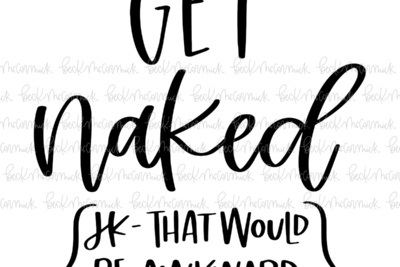 GET
naked
{JK-THAT WOULD}
BE AWKWARD